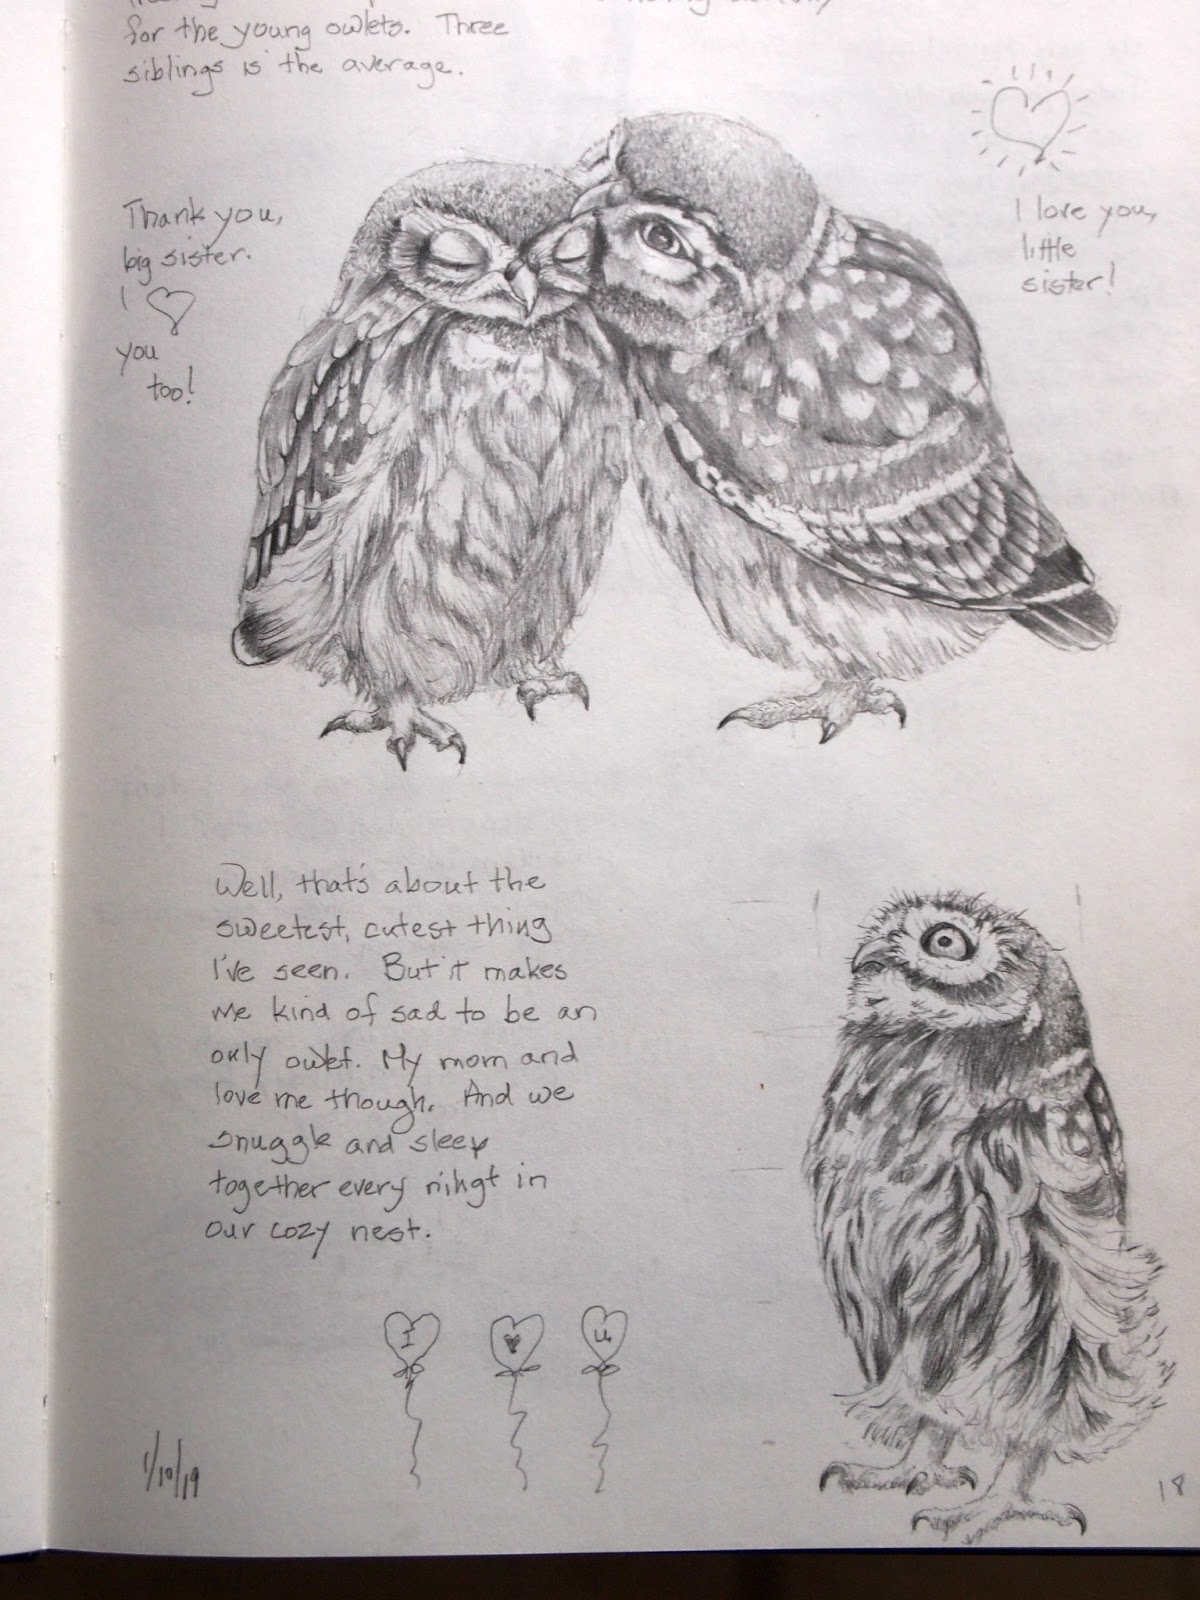 for the young owlets. Three
siblings is the average.
Thank you,
big sister.
I ♡
you
too!
I love you,
little
sister!
Well, that's about the
sweetest, cutest thing
I've seen. But it makes
me kind of sad to be an
only owlet. My mom and
love me though. And we
snuggle and sleep
together every nihgt in
our cozy nest.
I ♥ U
1/10/19
18